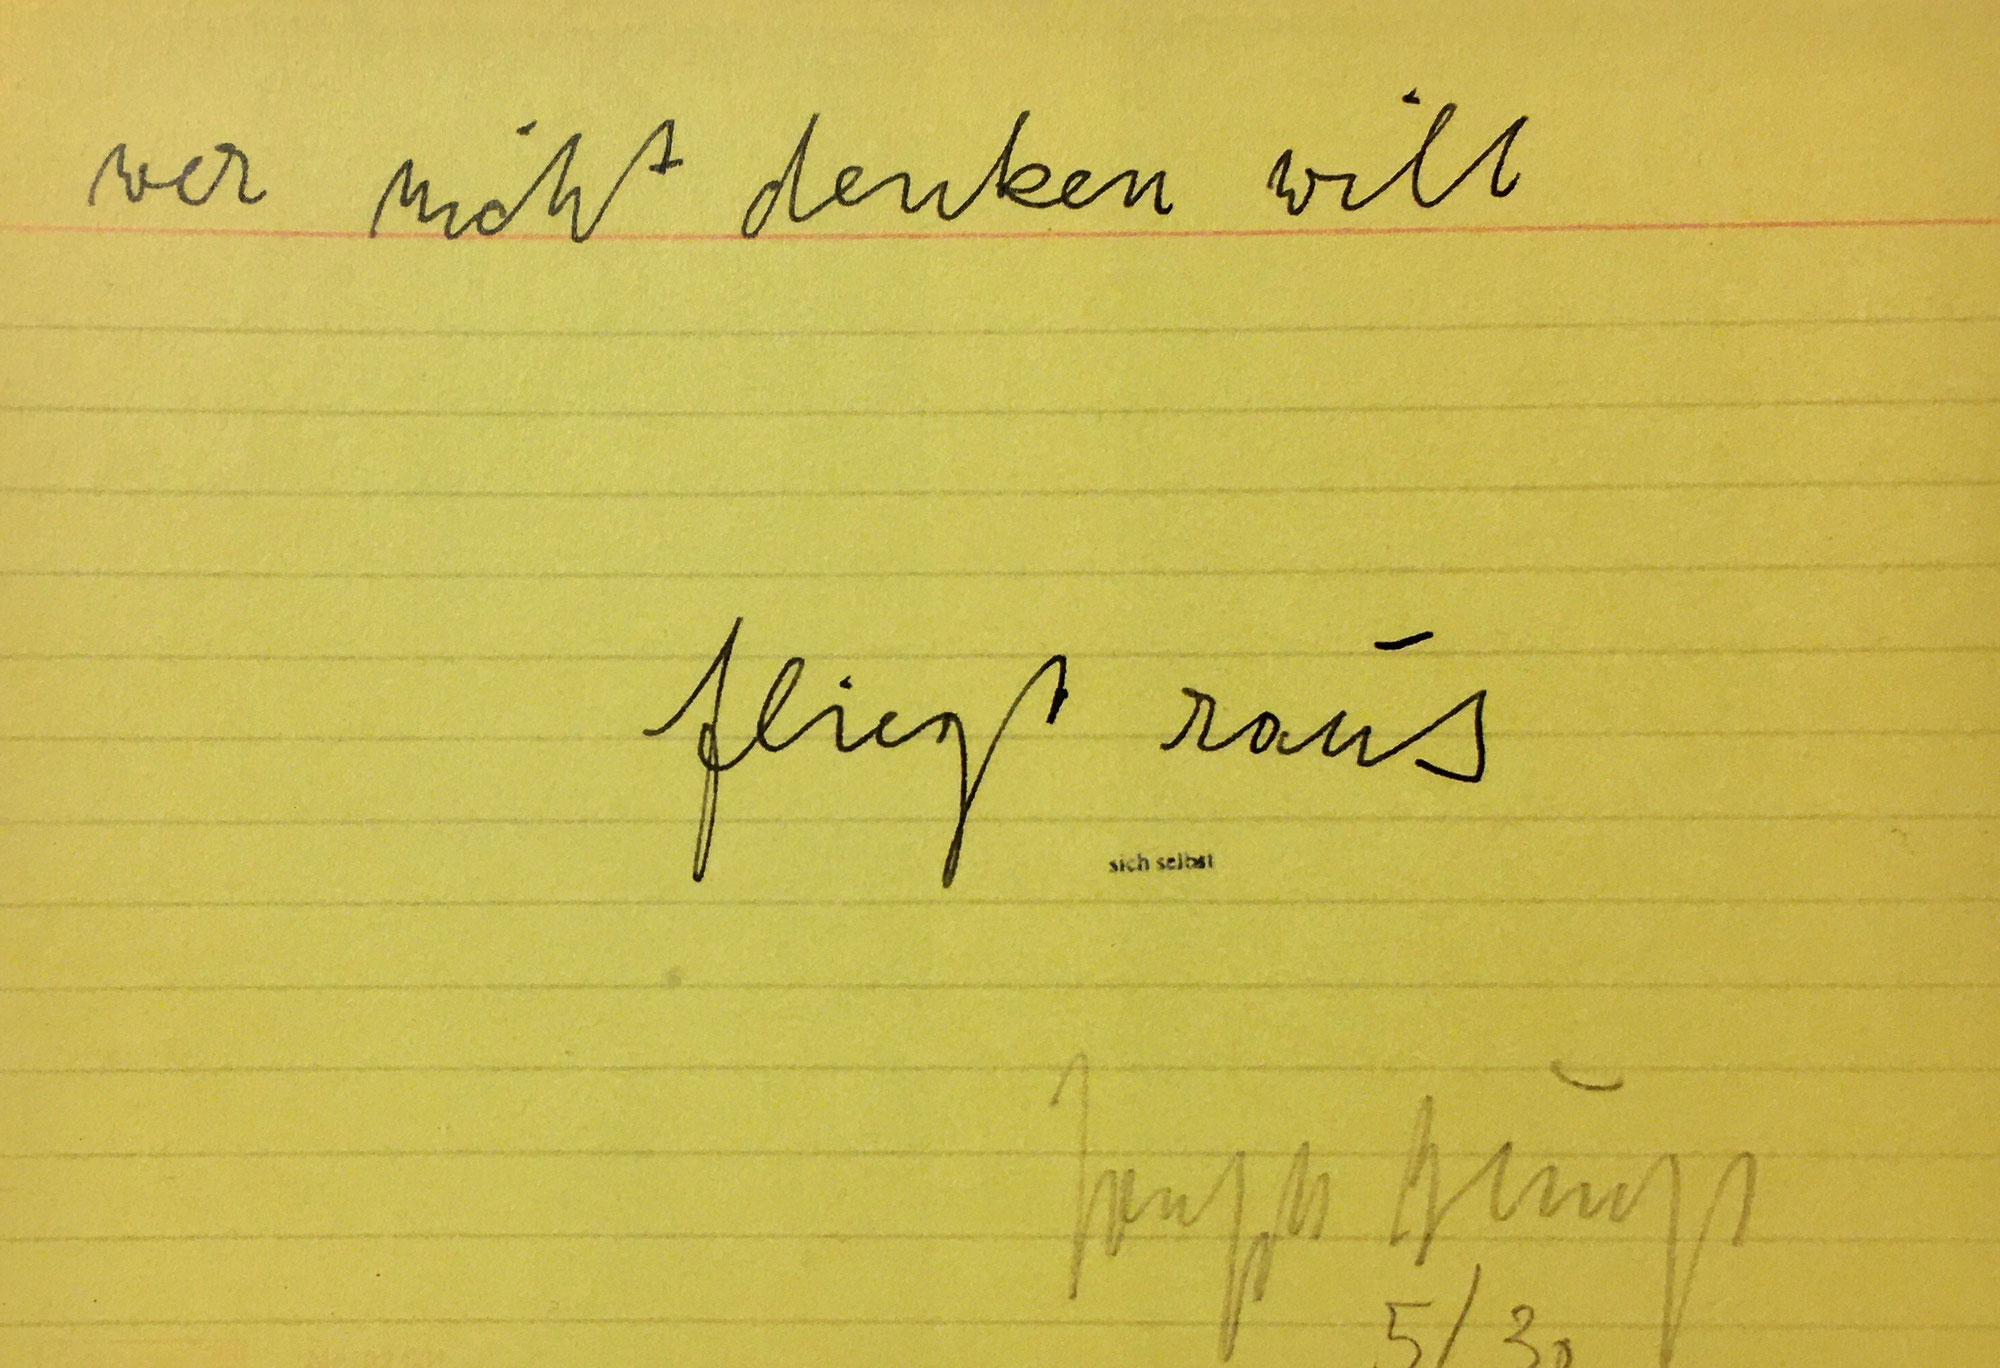 wer nicht denken will
fliegt raus
sich selbst
5/30